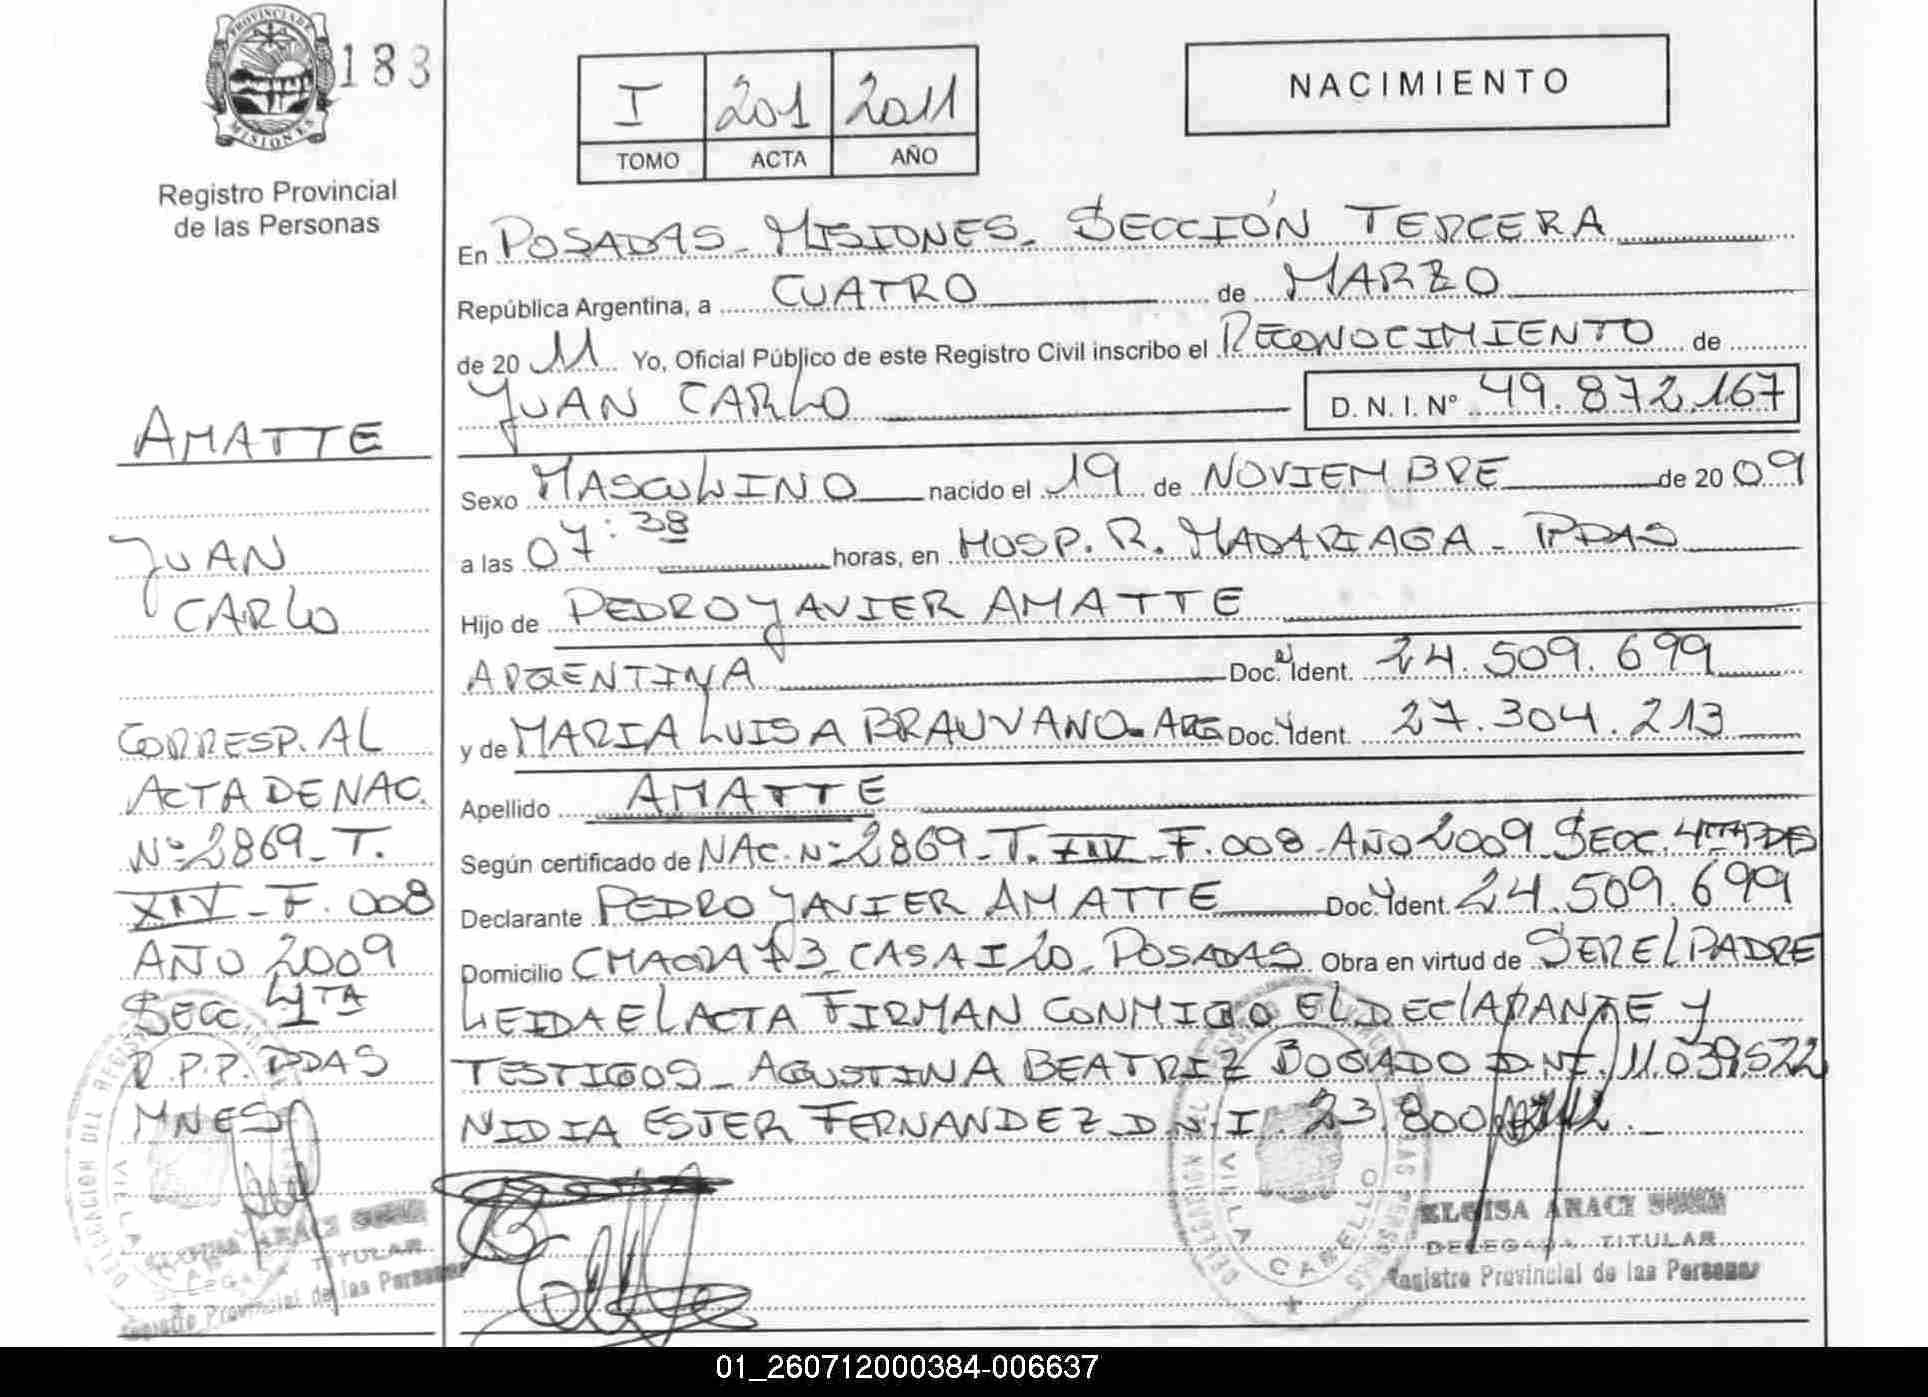 PROVINCIA DE
MISIONES
183
Registro Provincial
de las Personas
I 201 2011
TOMO ACTA AÑO
NACIMIENTO
En POSADAS - MISIONES - SECCIÓN TERCERA
República Argentina, a CUATRO de MARZO
de 20 11 Yo, Oficial Público de este Registro Civil inscribo el RECONOCIMIENTO de
JUAN CARLO D. N. I. Nº 49.872.167
Sexo MASCULINO nacido el 19 de NOVIEMBRE de 20 09
a las 07:38 horas, en HOSP. R. MADARIAGA - PDAS
Hijo de PEDRO JAVIER AMATTE
ARGENTINA Doc. Ident. 24.509.699
y de MARIA LUISA BRAUVANO - ARG Doc. Ident. 27.304.213
Apellido AMATTE
Según certificado de NAC. Nº 2869 - T. XIV - F. 008 - AÑO 2009 SECC. 4TA PDAS
Declarante PEDRO JAVIER AMATTE Doc. Ident. 24.509.699
Domicilio CHACRA 73 - CASA I 20 - POSADAS Obra en virtud de SER EL PADRE
LEIDA EL ACTA FIRMAN CONMIGO EL DECLARANTE Y
TESTIGOS - AGUSTINA BEATRIZ BOGADO D.N.I. 11.039.522
NIDIA ESTER FERNANDEZ D.N.I. 23.800
AMATTE
JUAN
CARLO
CORRESP. AL
ACTA DE NAC.
Nº 2869 - T.
XIV - F. 008
AÑO 2009
SECC. 4TA
R.P.P. PDAS
MNES
DELEGACION DEL REGISTRO
VILLA
TITULAR
Registro Provincial de las Personas
DELEGACION
VILLA CABELLO
DE LAS PERSONAS
ELOISA ARACI
DELEGADA TITULAR
Registro Provincial de las Personas
01_260712000384-006637